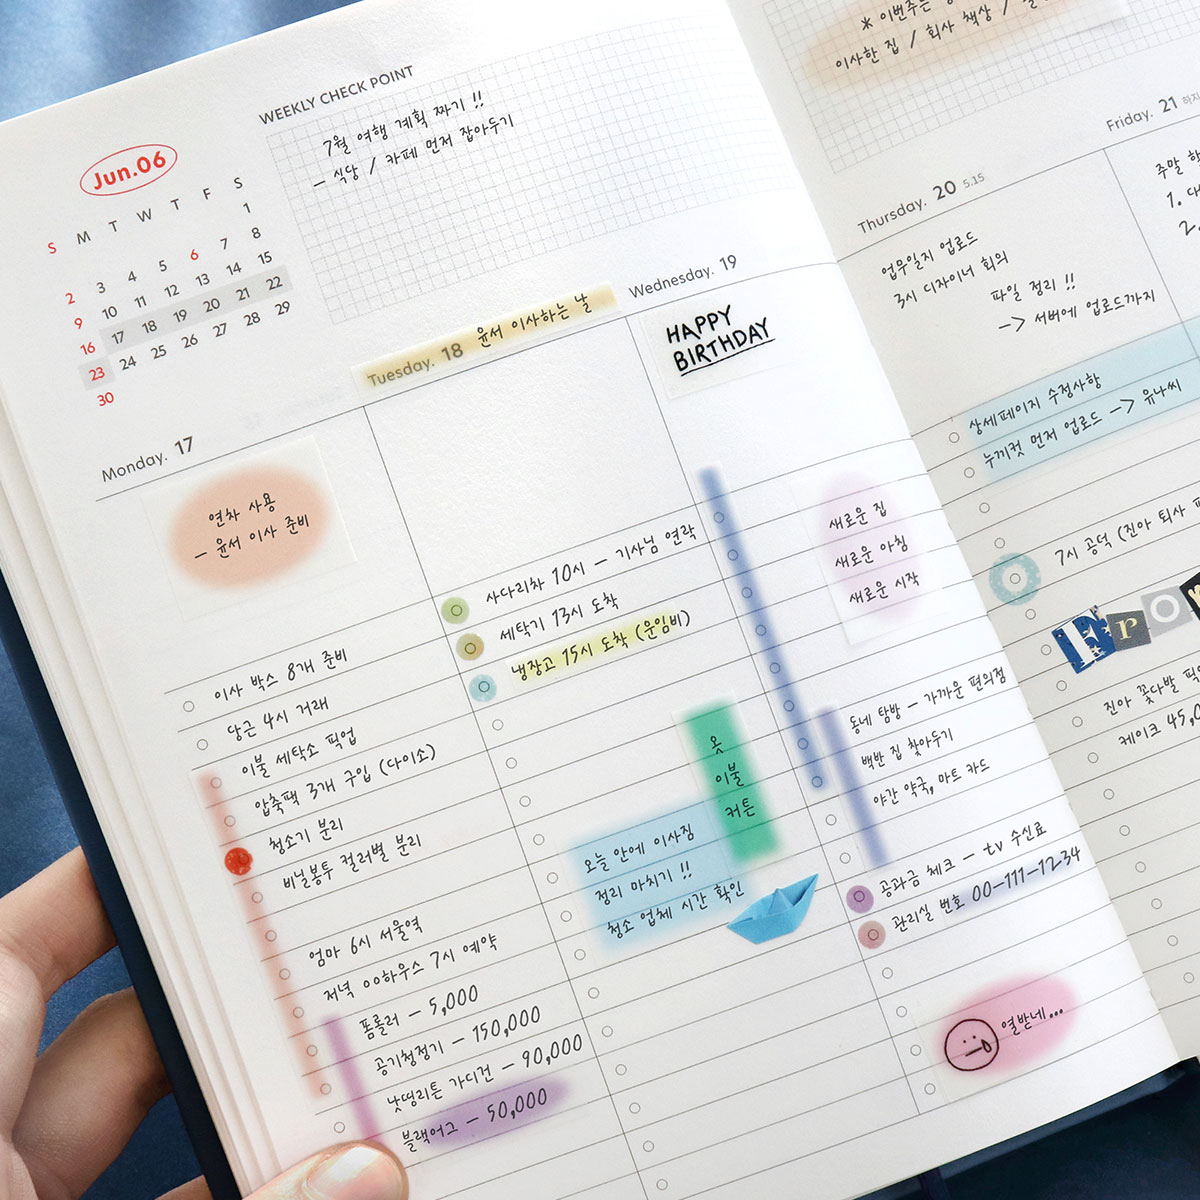 WEEKLY CHECK POINT
7월 여행 계획 짜기 !!
– 식당 / 카페 먼저 잡아두기
Jun.06
S M T W T F S
1
2 3 4 5 6 7 8
9 10 11 12 13 14 15
16 17 18 19 20 21 22
23 24 25 26 27 28 29
30
Monday. 17
연차 사용
– 윤서 이사 준비
이사 박스 8개 준비
당근 4시 거래
이불 세탁소 픽업
압축팩 3개 구입 (다이소)
청소기 분리
비닐봉투 컬러별 분리
엄마 6시 서울역
저녁 00하우스 7시 예약
폼롤러 – 5,000
공기청정기 – 150,000
낫띵리튼 가디건 – 90,000
블랙어그 – 50,000
Tuesday. 18 윤서 이사하는 날
사다리차 10시 – 기사님 연락
세탁기 13시 도착
냉장고 15시 도착 (운임비)
옷
이불
커튼
오늘 안에 이사짐
정리 마치기 !!
청소 업체 시간 확인
Wednesday. 19
HAPPY
BIRTHDAY
새로운 집
새로운 아침
새로운 시작
동네 탐방 – 가까운 편의점
백반 집 찾아두기
야간 약국, 마트 카드
공과금 체크 – tv 수신료
관리실 번호 00-111-1234
열받네...
* 이번주는
이사한 집 / 회사 책상 /
Thursday. 20 5.15
업무일지 업로드
3시 디자이너 회의
파일 정리 !!
–> 서버에 업로드까지
상세페이지 수정사항
누끼컷 먼저 업로드 –> 유나씨
7시 공덕 (진아 퇴사
진아 꽃다발
케이크 45,0
Friday. 21
주말
1.
2.